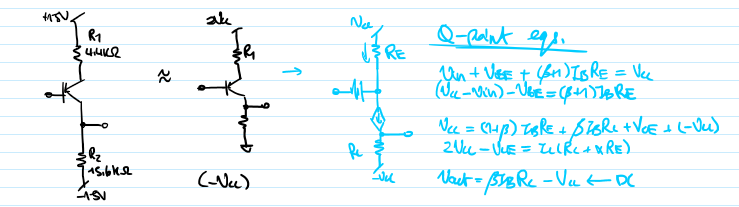 +15V
R1
4.4kΩ
R2
15.6kΩ
-15V
≈
2Vcc
R1
(-Vcc)
→
Vcc
RE
Rc
-Vcc
Q-point eqs.
Vin + VEE + (β+1)IBRE = Vcc
(Vcc-Vin)-VBE=(β+1)IBRE
Vcc = (1+β) IBRE + βIBRc + VCE + (-Vcc)
2Vcc - VCE = Ic(Rc + αRE)
Vout = βIBRc - Vcc ← DC